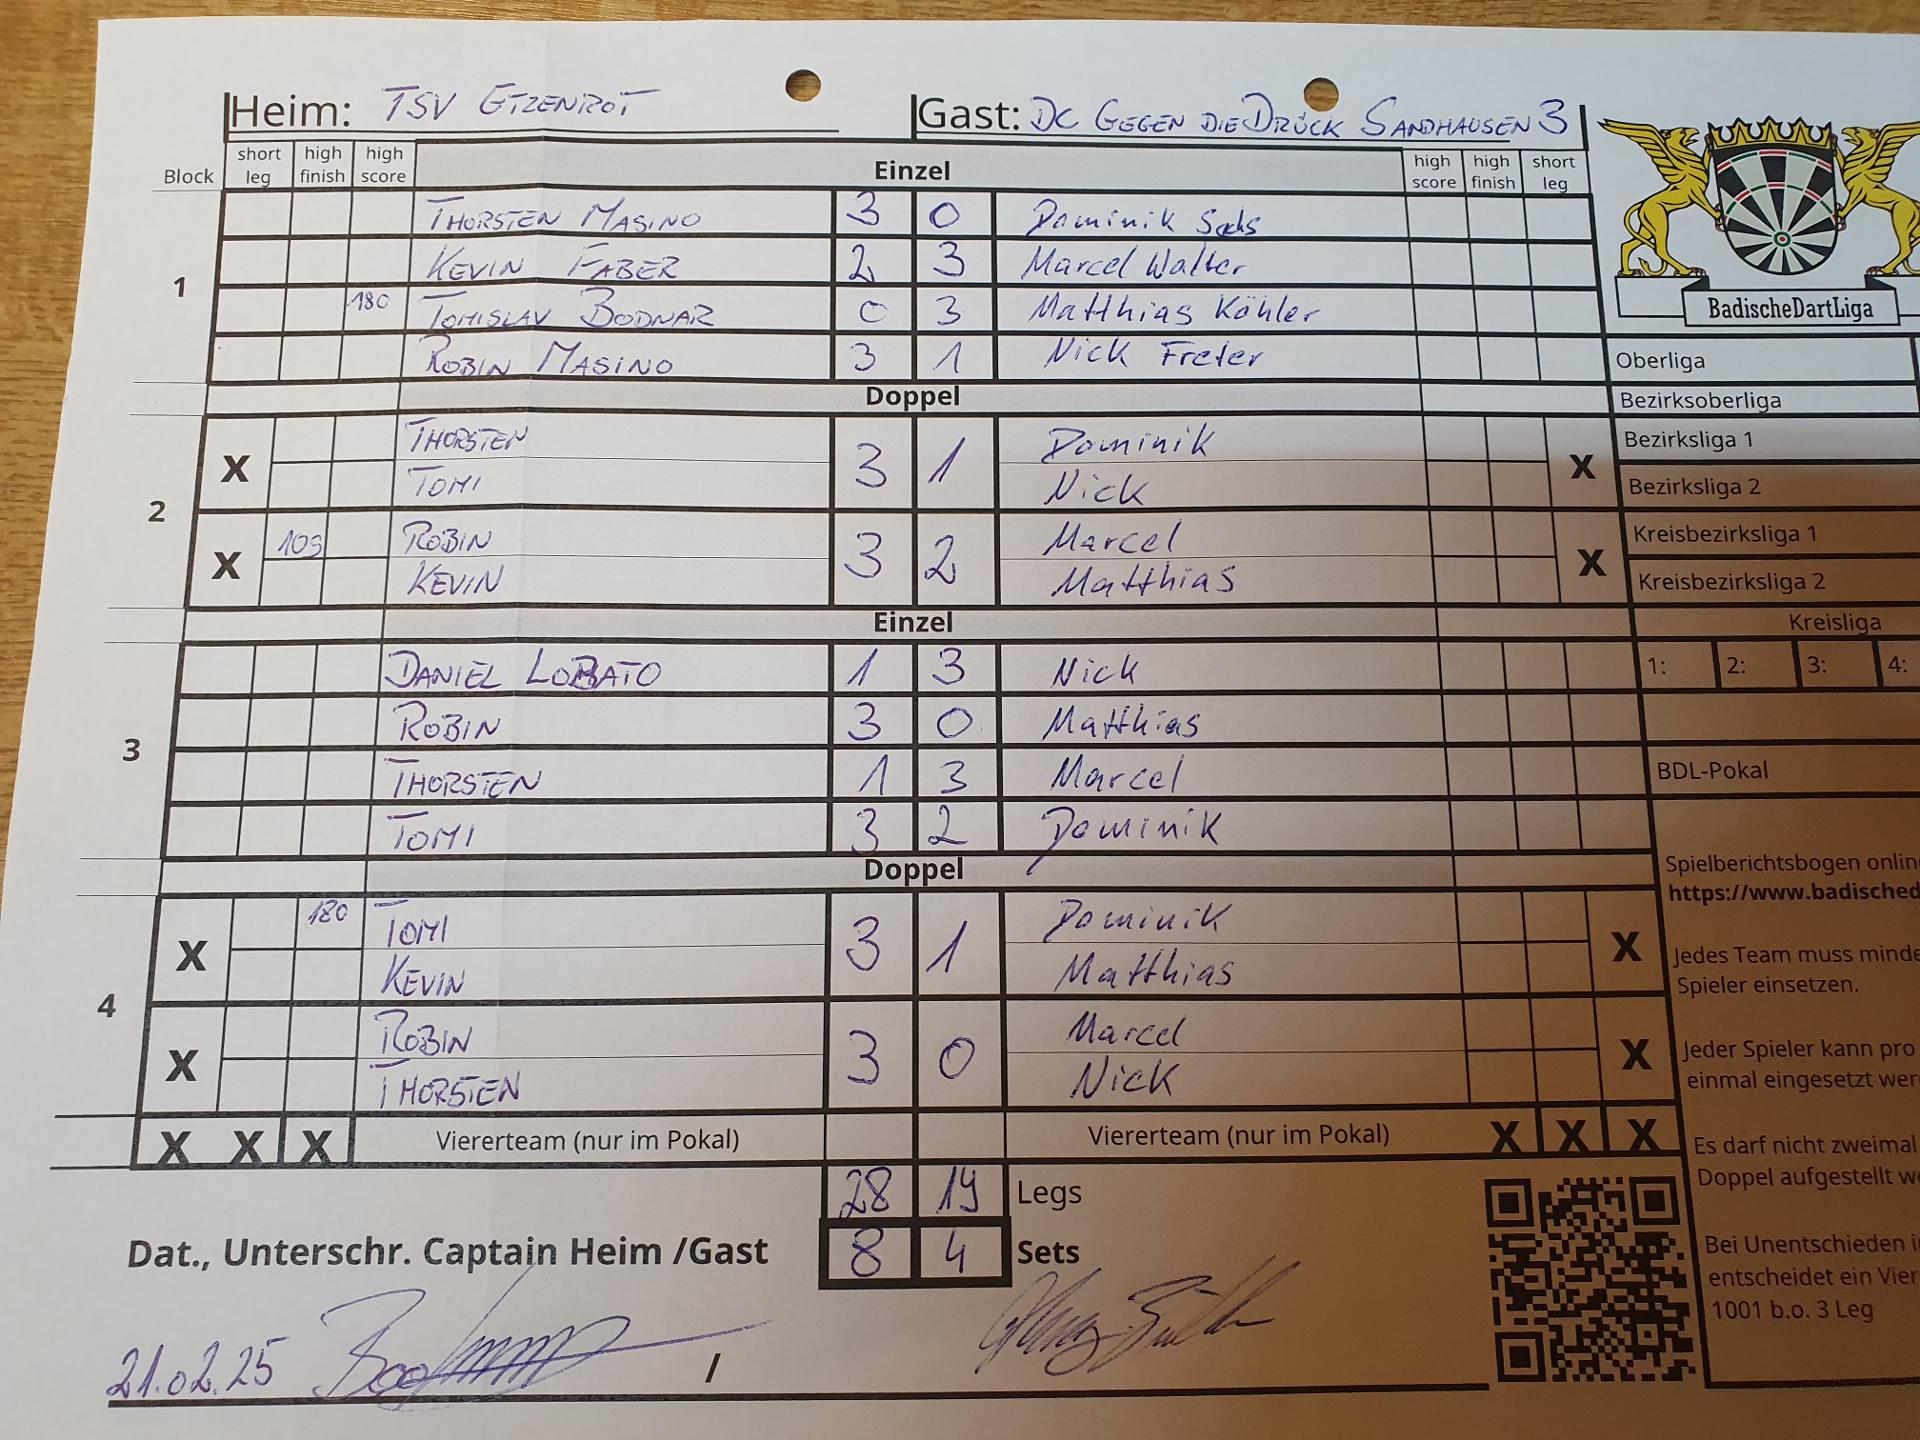 Heim: TSV ETZENROT Gast: DC GEGEN DIE DRÜCK SANDHAUSEN 3
Block short leg high finish high score Einzel high score high finish short leg
1
THORSTEN MASINO 3 0 Dominik Sachs
KEVIN FABER 2 3 Marcel Walter
180 TOMISLAV BODNAR 0 3 Matthias Köhler
ROBIN MASINO 3 1 Nick Freter
Doppel
2
X THORSTEN 3 1 Dominik X
TOMI Nick
X 109 ROBIN 3 2 Marcel X
KEVIN Matthias
Einzel
3
DANIEL LOBATO 1 3 Nick
ROBIN 3 0 Matthias
THORSTEN 1 3 Marcel
TOMI 3 2 Dominik
Doppel
4
X 180 TOMI 3 1 Dominik X
KEVIN Matthias
X ROBIN 3 0 Marcel X
THORSTEN Nick
X X X Viererteam (nur im Pokal) Viererteam (nur im Pokal) X X X
28 19 Legs
8 4 Sets
Dat., Unterschr. Captain Heim /Gast
21.02.25 /
BadischeDartLiga
Oberliga
Bezirksoberliga
Bezirksliga 1
Bezirksliga 2
Kreisbezirksliga 1
Kreisbezirksliga 2
Kreisliga
1: 2: 3: 4:
BDL-Pokal
Spielberichtsbogen onlin
https://www.badisched
Jedes Team muss minde
Spieler einsetzen.
Jeder Spieler kann pro
einmal eingesetzt wer
Es darf nicht zweimal
Doppel aufgestellt we
Bei Unentschieden i
entscheidet ein Vier
1001 b.o. 3 Leg